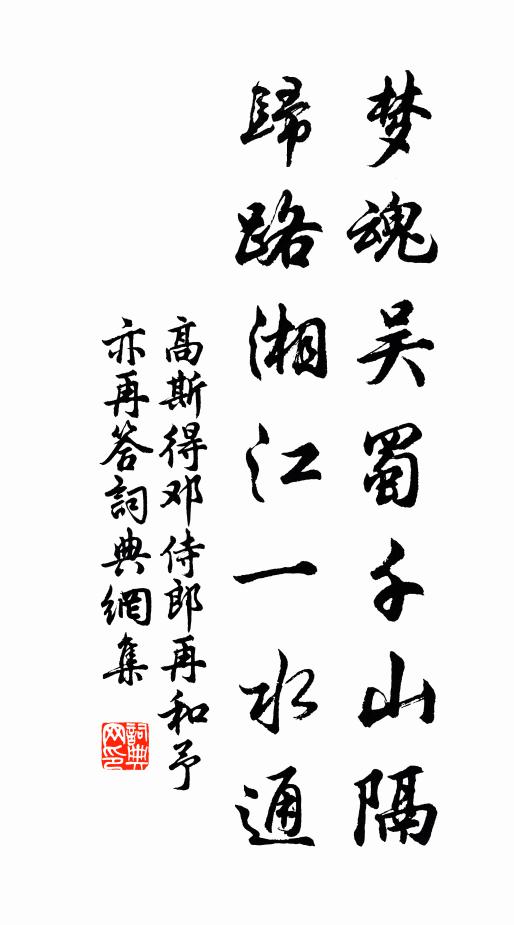 梦魂吴蜀千山隔
歸路湘江一水通
高斯得邓侍郎再和予
亦再答詞典網集
詞典
网印